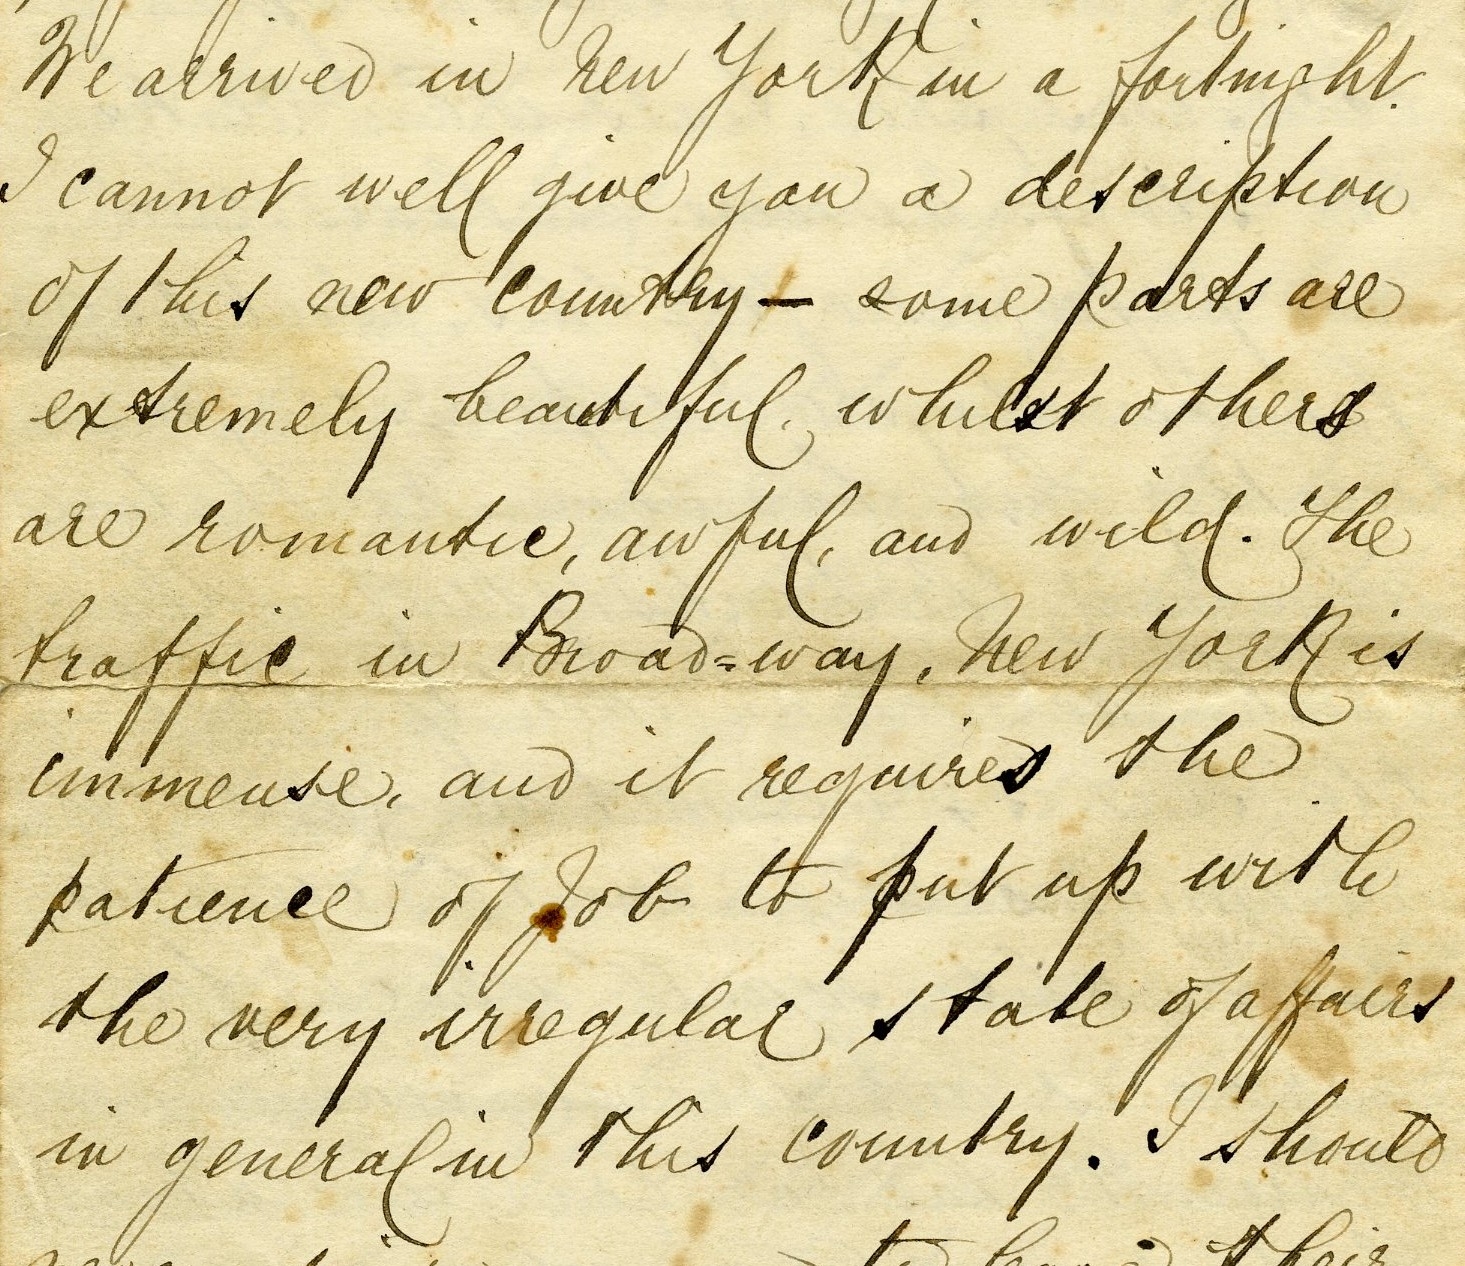 We arrived in New York in a fortnight.
I cannot well give you a description
of this new country — some parts are
extremely beautiful, whilst others
are romantic, awful, and wild. The
traffic in Broad=way, New York is
immense, and it requires the
patience of Job to put up with
the very irregular state of affairs
in general in this country. I should
to leave their